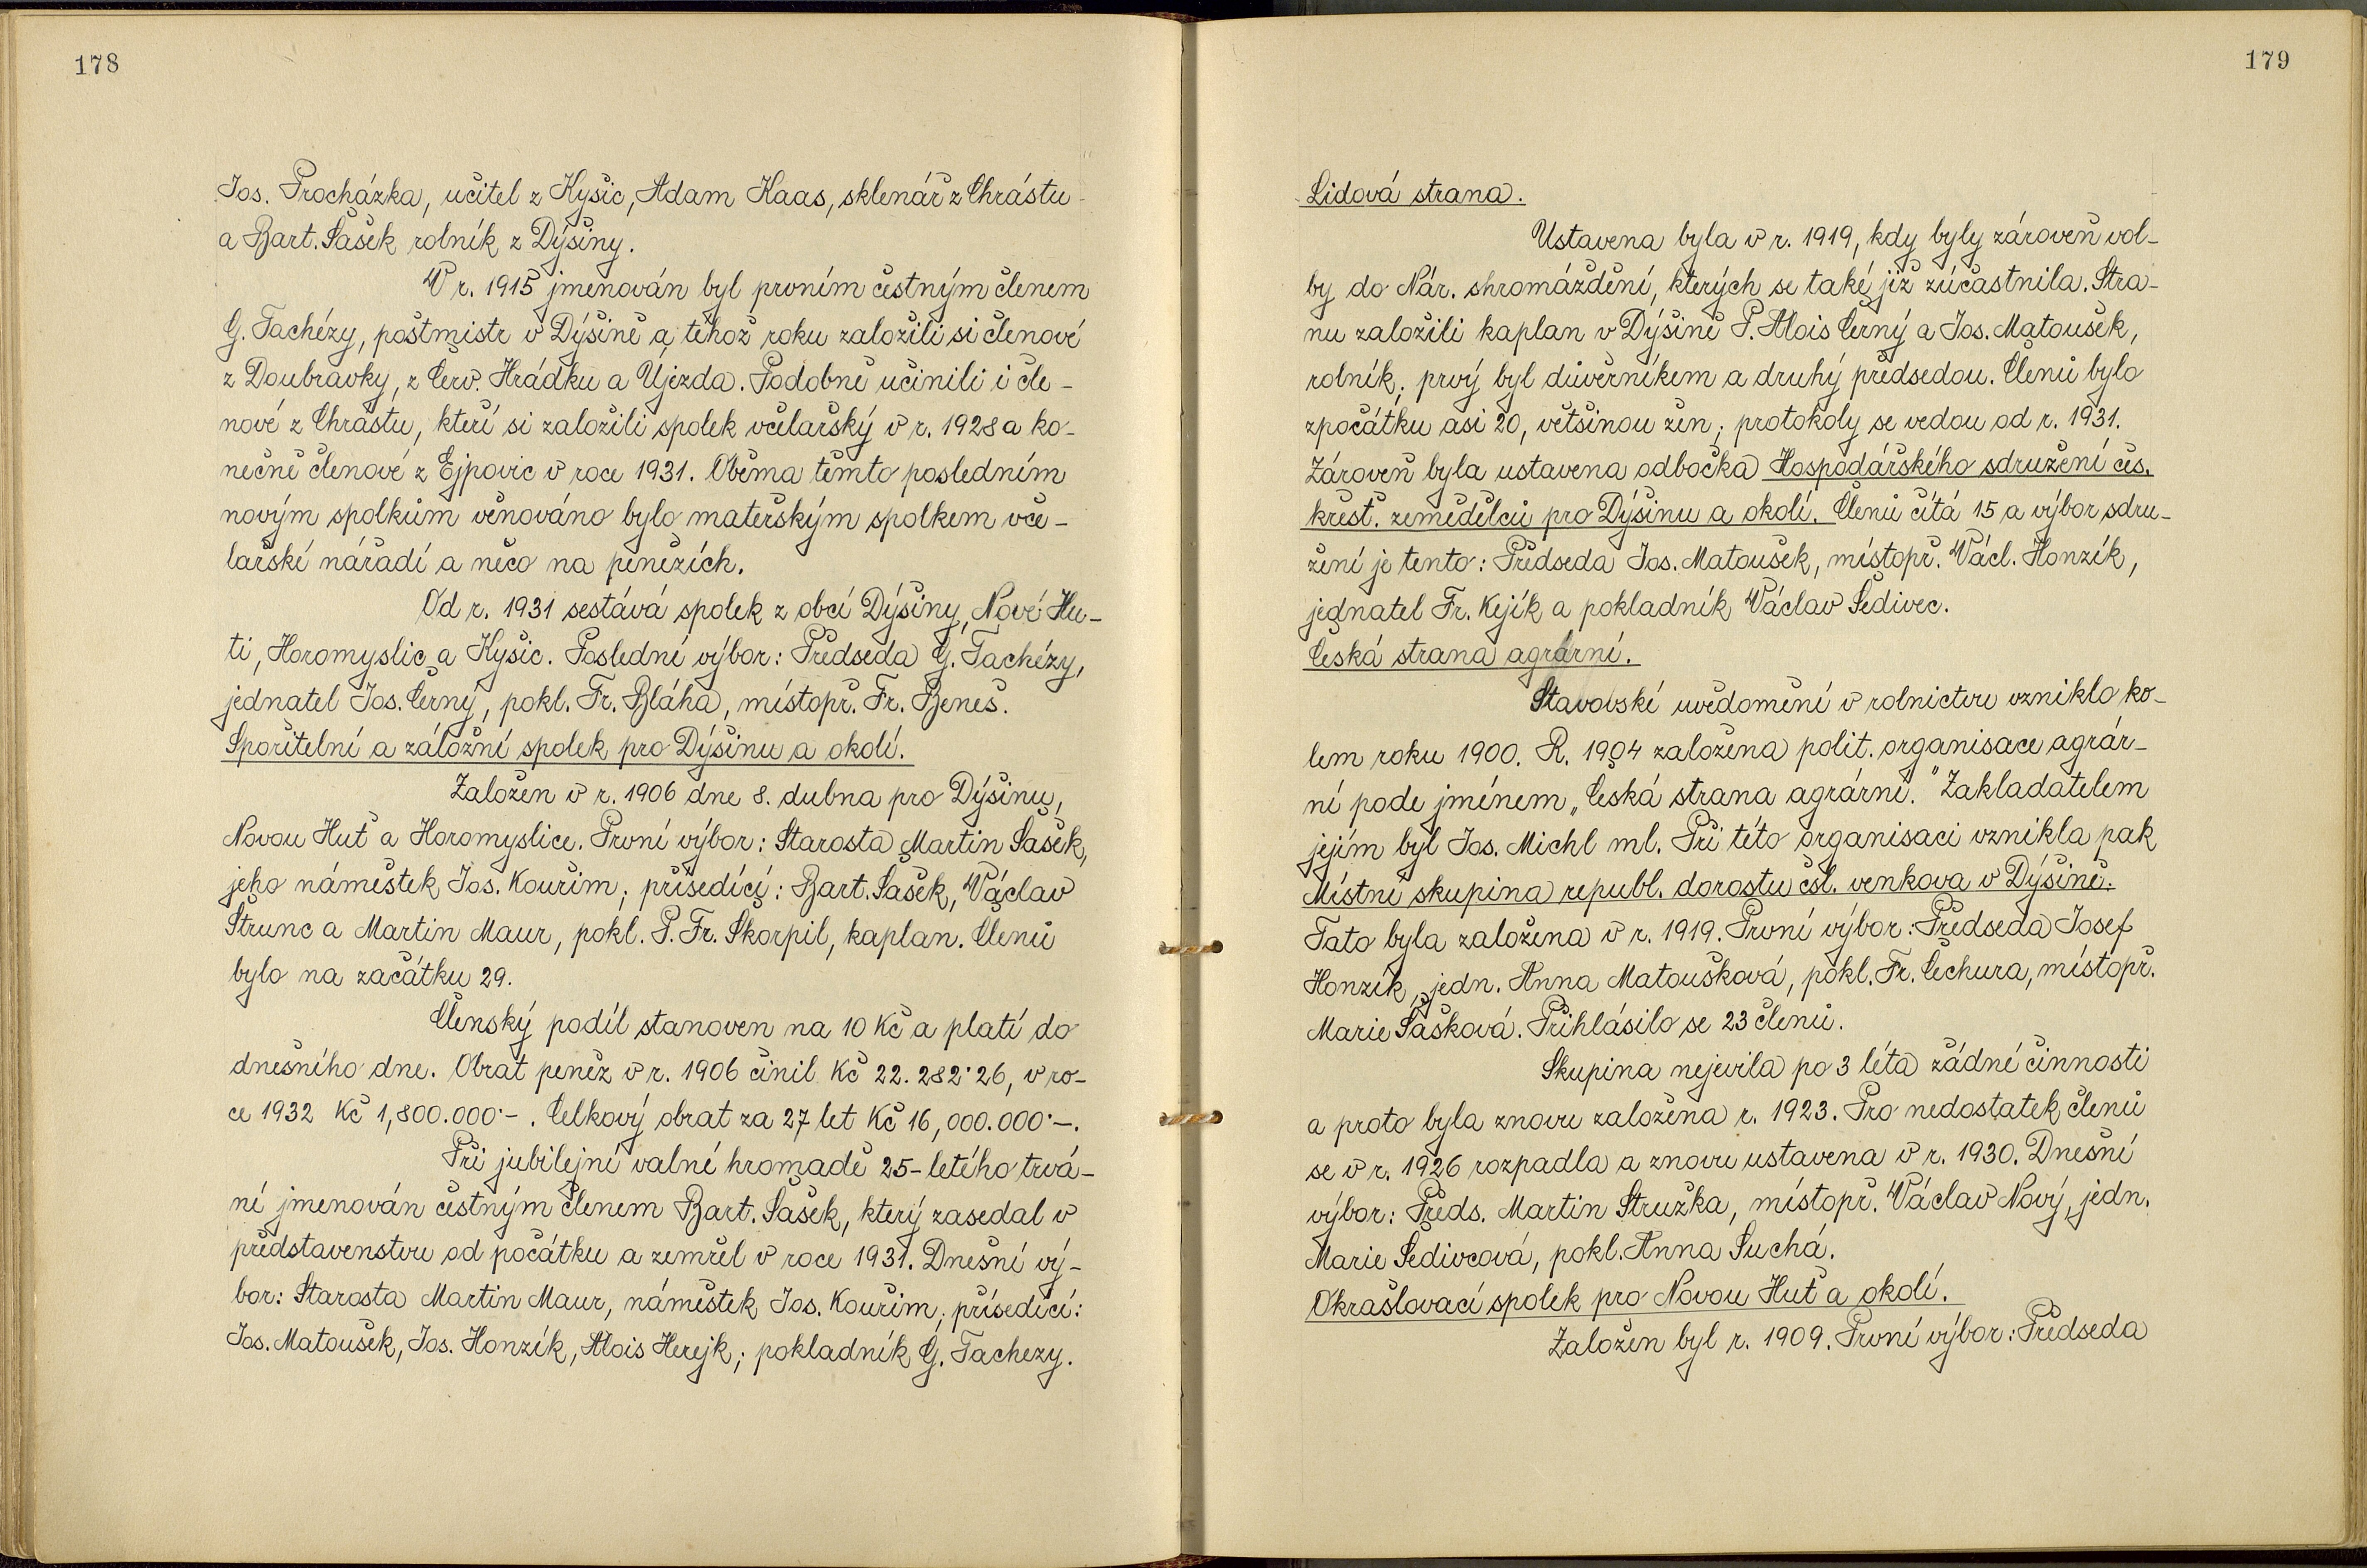 178
Jos. Procházka, učitel z Kyšic, Adam Haas, sklenář z Chrástu
a Bart. Šašek rolník z Dýšiny.
V r. 1915 jmenován byl prvním čestným členem
G. Tachézy, poštmistr v Dýšině a téhož roku založili si členové
z Doubravky, z Červ. Hrádku a Újezda. Podobně učinili i čle-
nové z Chrástu, kteří si založili spolek včelařský v r. 1928 a ko-
nečně členové z Ejpovic v roce 1931. Oběma těmto posledním
novým spolkům věnováno bylo mateřským spolkem vče-
lařské nářadí a něco na penězích.
Od r. 1931 sestává spolek z obcí Dýšiny, Nové Hu-
ti, Horomyslic a Kyšic. Poslední výbor: Předseda G. Tachézy,
jednatel Jos. Černý, pokl. Fr. Bláha, místopř. Fr. Beneš.
Spořitelní a záložní spolek pro Dýšinu a okolí.
Založen v r. 1906 dne 8. dubna pro Dýšinu,
Novou Huť a Horomyslice. První výbor: Starosta Martin Šašek,
jeho náměstek Jos. Kouřim; přísedící: Bart. Šašek, Václav
Štrunc a Martin Maur, pokl. P. Fr. Škorpil, kaplan. Členů
bylo na začátku 29.
Členský podíl stanoven na 10 Kč a platí do
dnešního dne. Obrat peněz v r. 1906 činil Kč 22.282·26, v ro-
ce 1932 Kč 1,800.000·-. Celkový obrat za 27 let Kč 16,000.000·-.
Při jubilejní valné hromadě 25-letého trvá-
ní jmenován čestným členem Bart. Šašek, který zasedal v
představenstvu od počátku a zemřel v roce 1931. Dnešní vý-
bor: Starosta Martin Maur, náměstek Jos. Kouřim; přísedící:
Jos. Matoušek, Jos. Honzík, Alois Herejk; pokladník G. Tachezy.
179
Lidová strana.
Ustavena byla v r. 1919, kdy byly zároveň vol-
by do Nár. shromáždění, kterých se také již zúčastnila. Stra-
nu založili kaplan v Dýšině P. Alois Černý a Jos. Matoušek,
rolník; prvý byl důvěrníkem a druhý předsedou. Členů bylo
zpočátku asi 20, většinou žen; protokoly se vedou od r. 1931.
Zároveň byla ustavena odbočka Hospodářského sdružení čes.
křesť. zemědělců pro Dýšinu a okolí. Členů čítá 15 a výbor sdru-
žení je tento: Předseda Jos. Matoušek, místopř. Václ. Honzík,
jednatel Fr. Kejík a pokladník Václav Šedivec.
Česká strana agrární.
Stavovské uvědomění v rolnictvu vzniklo ko-
lem roku 1900. R. 1904 založena polit. organisace agrár-
ní pode jménem „Česká strana agrární." Zakladatelem
jejím byl Jos. Michl ml. Při této organisaci vznikla pak
Místní skupina republ. dorostu čsl. venkova v Dýšině.
Tato byla založena v r. 1919. První výbor: Předseda Josef
Honzík, jedn. Anna Matoušková, pokl. Fr. Čechura, místopř.
Marie Šašková. Přihlásilo se 23 členů.
Skupina nejevila po 3 léta žádné činnosti
a proto byla znovu založena r. 1923. Pro nedostatek členů
se v r. 1926 rozpadla a znovu ustavena v r. 1930. Dnešní
výbor: Předs. Martin Stružka, místopř. Václav Nový, jedn.
Marie Šedivcová, pokl. Anna Suchá.
Okrašlovací spolek pro Novou Huť a okolí.
Založen byl r. 1909. První výbor: Předseda